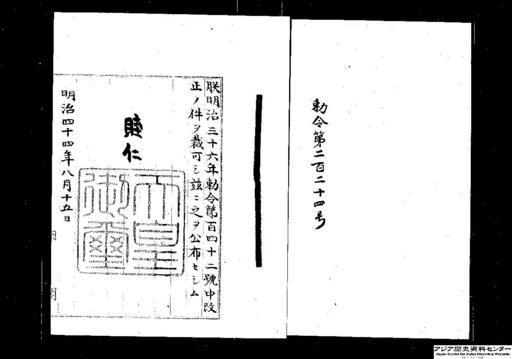 勅令第二百二十四号
朕明治三十六年勅令第百四十二號中改
正ノ件ヲ裁可シ茲ニ之ヲ公布セシム
睦仁
天皇
御璽
明治四十四年八月十五日
内
閣
アジア歴史資料センター
Japan Center for Asian Historical Records